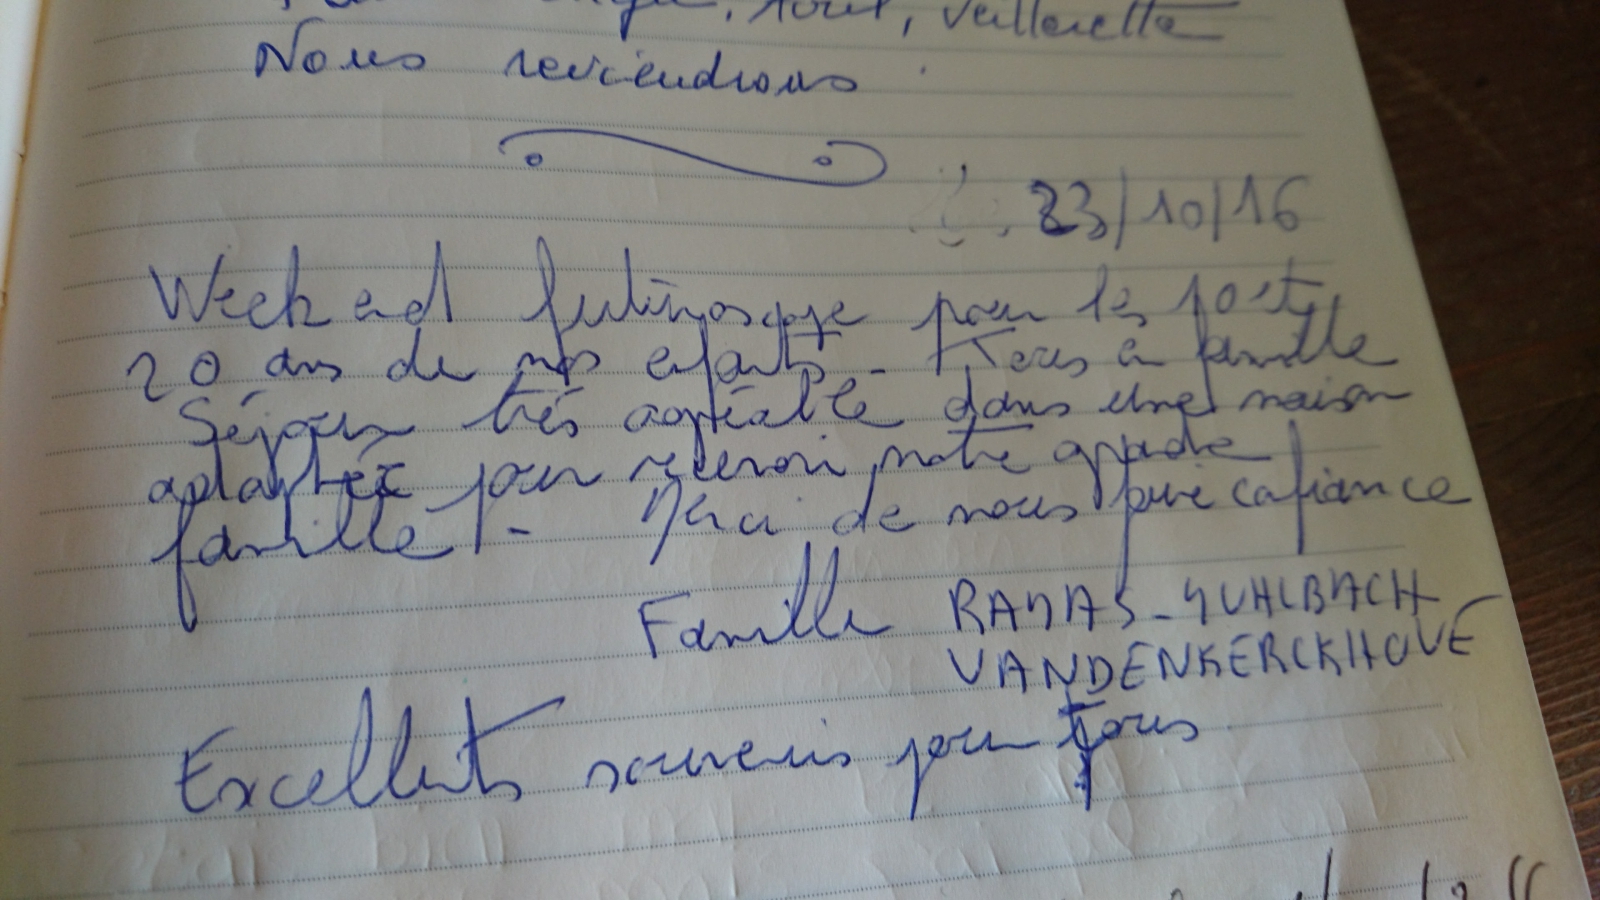 Nous reviendrons
23/10/16
Week end futuroscope pour les
20 ans de nos enfants - Tous en famille
Séjour très agréable dans une maison
adaptée pour recevoir notre grande
famille - Merci de nous confiance
Famille RAMAS-MUHLBACH
VANDENKERCKHOVE
Excellents souvenirs pour tous